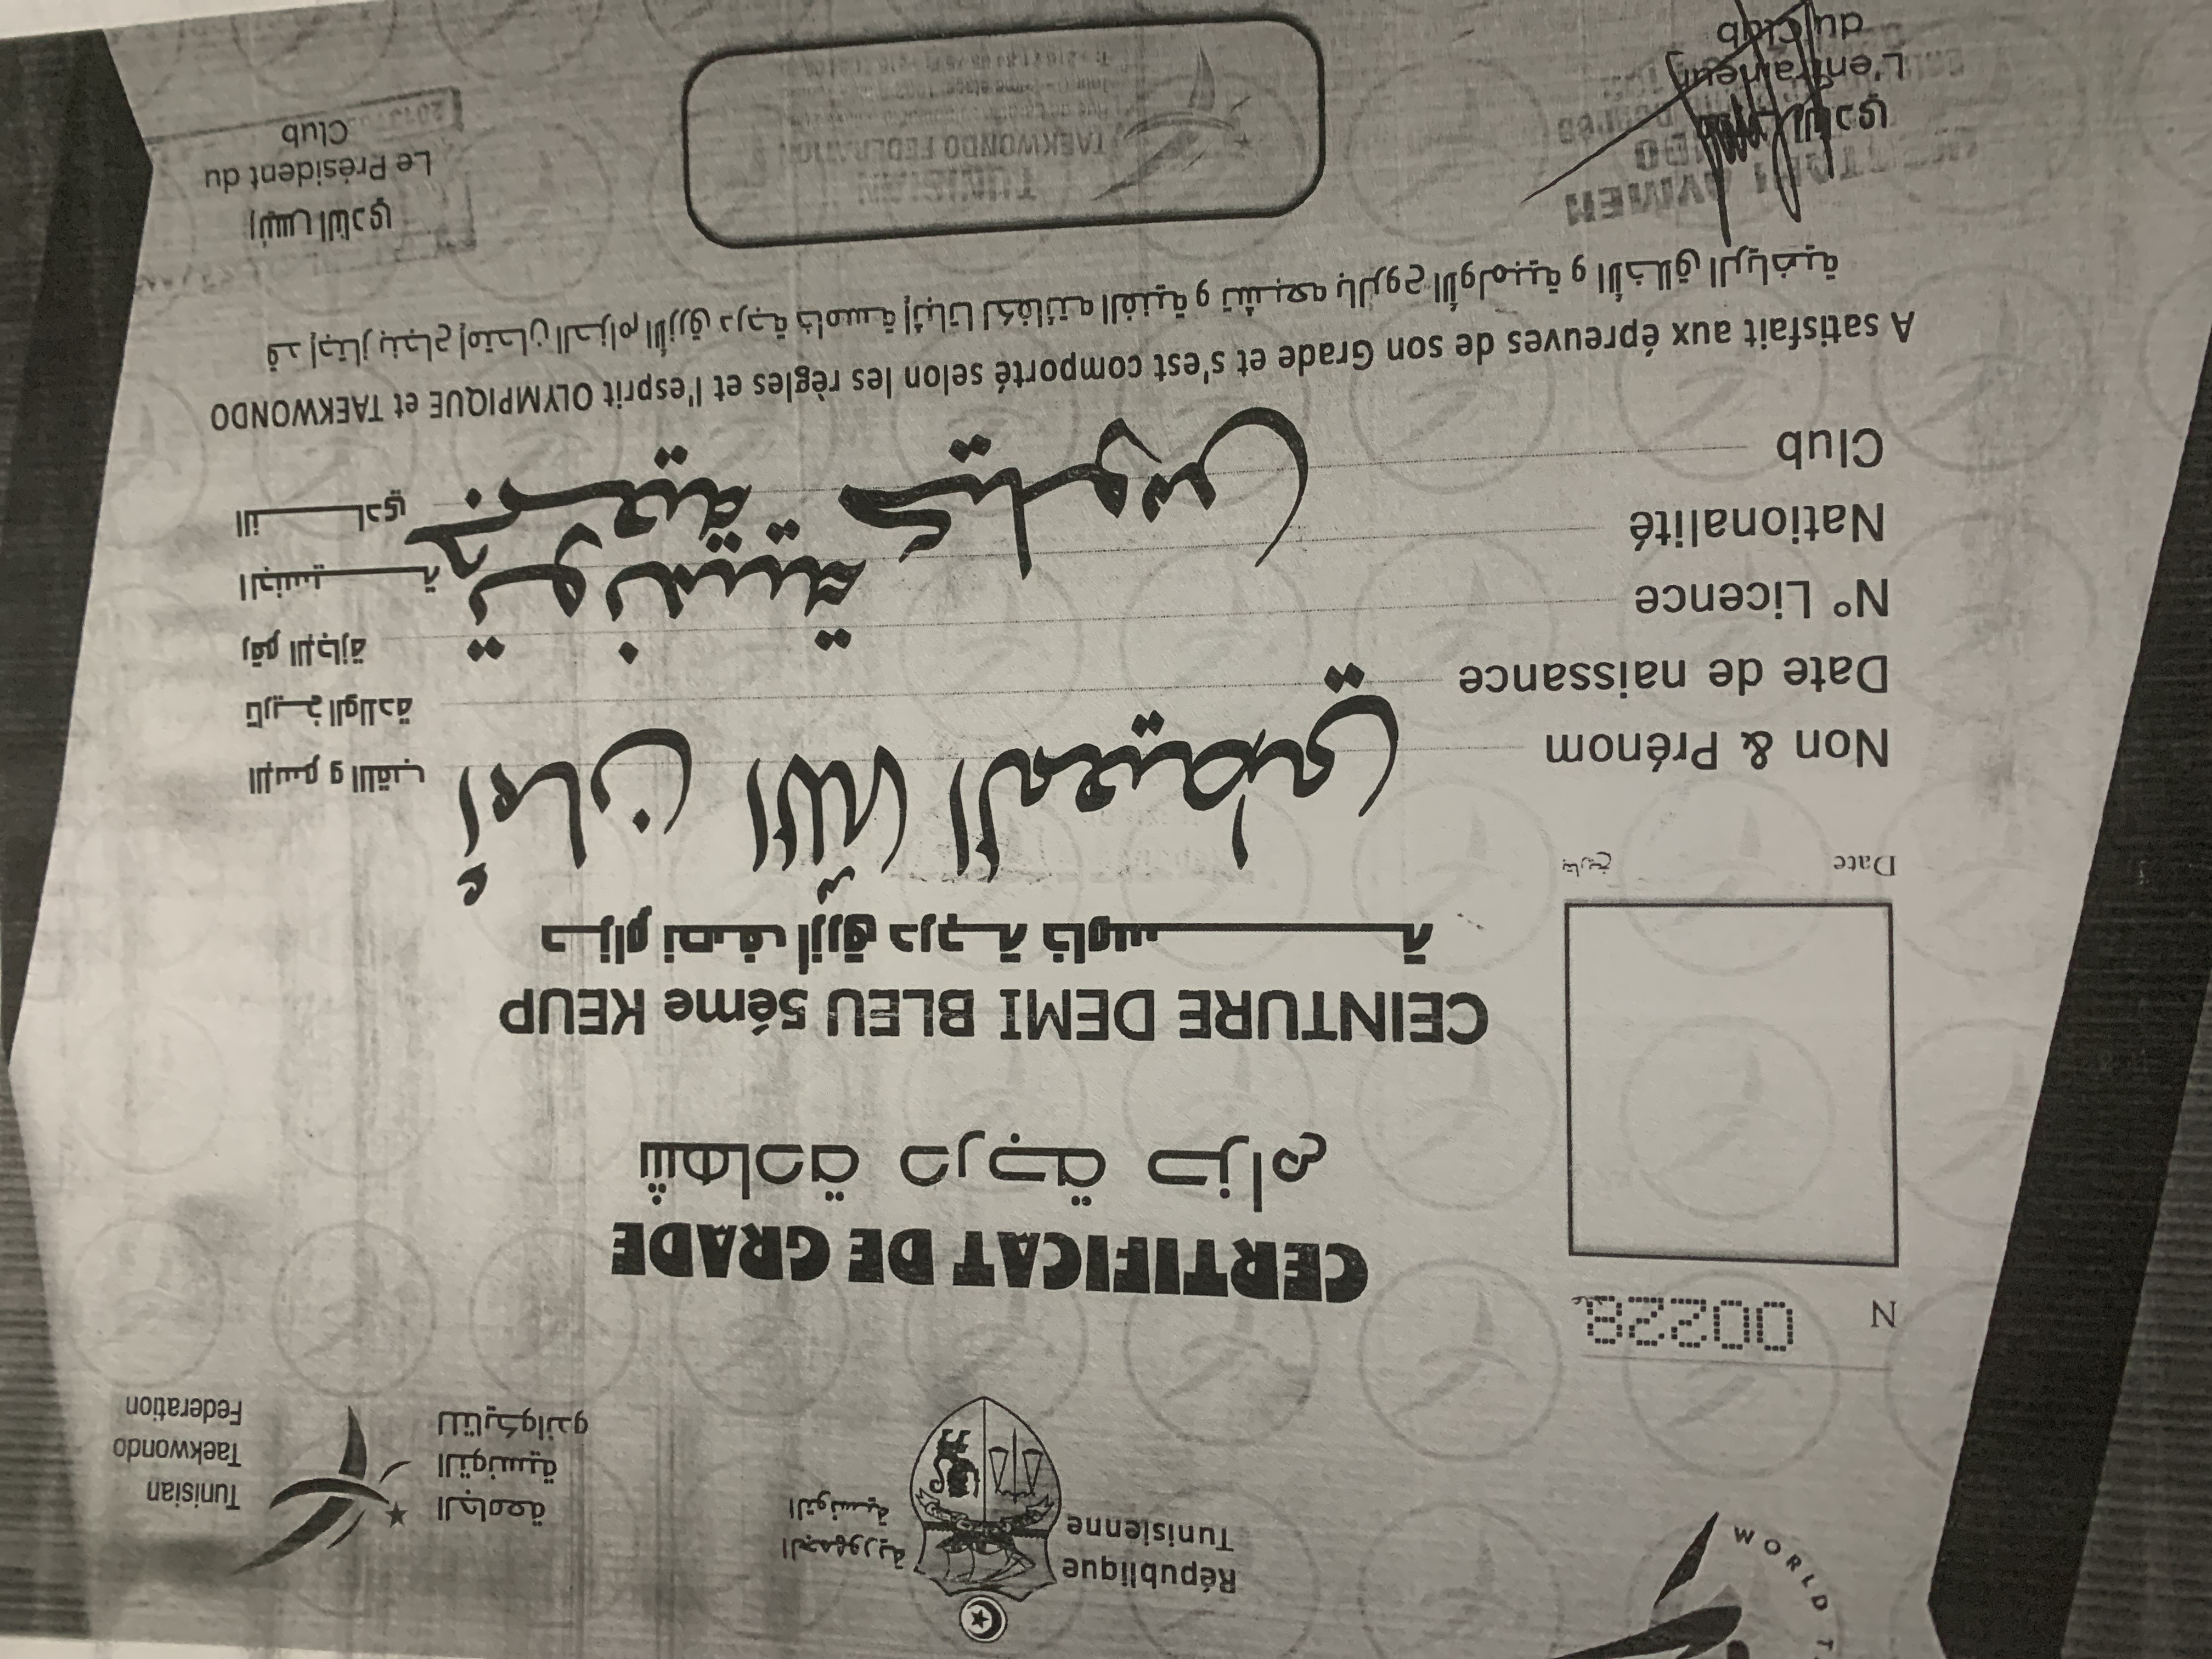 WORLD T
République
Tunisienne
الجمهورية
التونسية
الجامعة
التونسية
للتايكواندو
Tunisian
Taekwondo
Federation
N 00228
CERTIFICAT DE GRADE
شهادة درجة حزام
CEINTURE DEMI BLEU 5éme KEUP
حزام نصف أزرق درجة خامسة
Date تاريخ
Non & Prénom أمان الله المعيطي الإسم و اللقب
Date de naissance تاريخ الولادة
N° Licence رقم الإجازة
Nationalité تونسية الجنسية
Club جمعية النادي
A satisfait aux épreuves de son Grade et s'est comporté selon les règles et l'esprit OLYMPIQUE et TAEKWONDO
قد إجتاز بنجاح إمتحان الحزام الأزرق درجة خامسة إثباتا لكفائته الفنية و تشبعه بالروح الأولمبية و الأخلاق الرياضية
L'entraineur
du Club
TUNISIAN
TAEKWONDO FEDERATION
رئيس النادي
Le Président du
Club